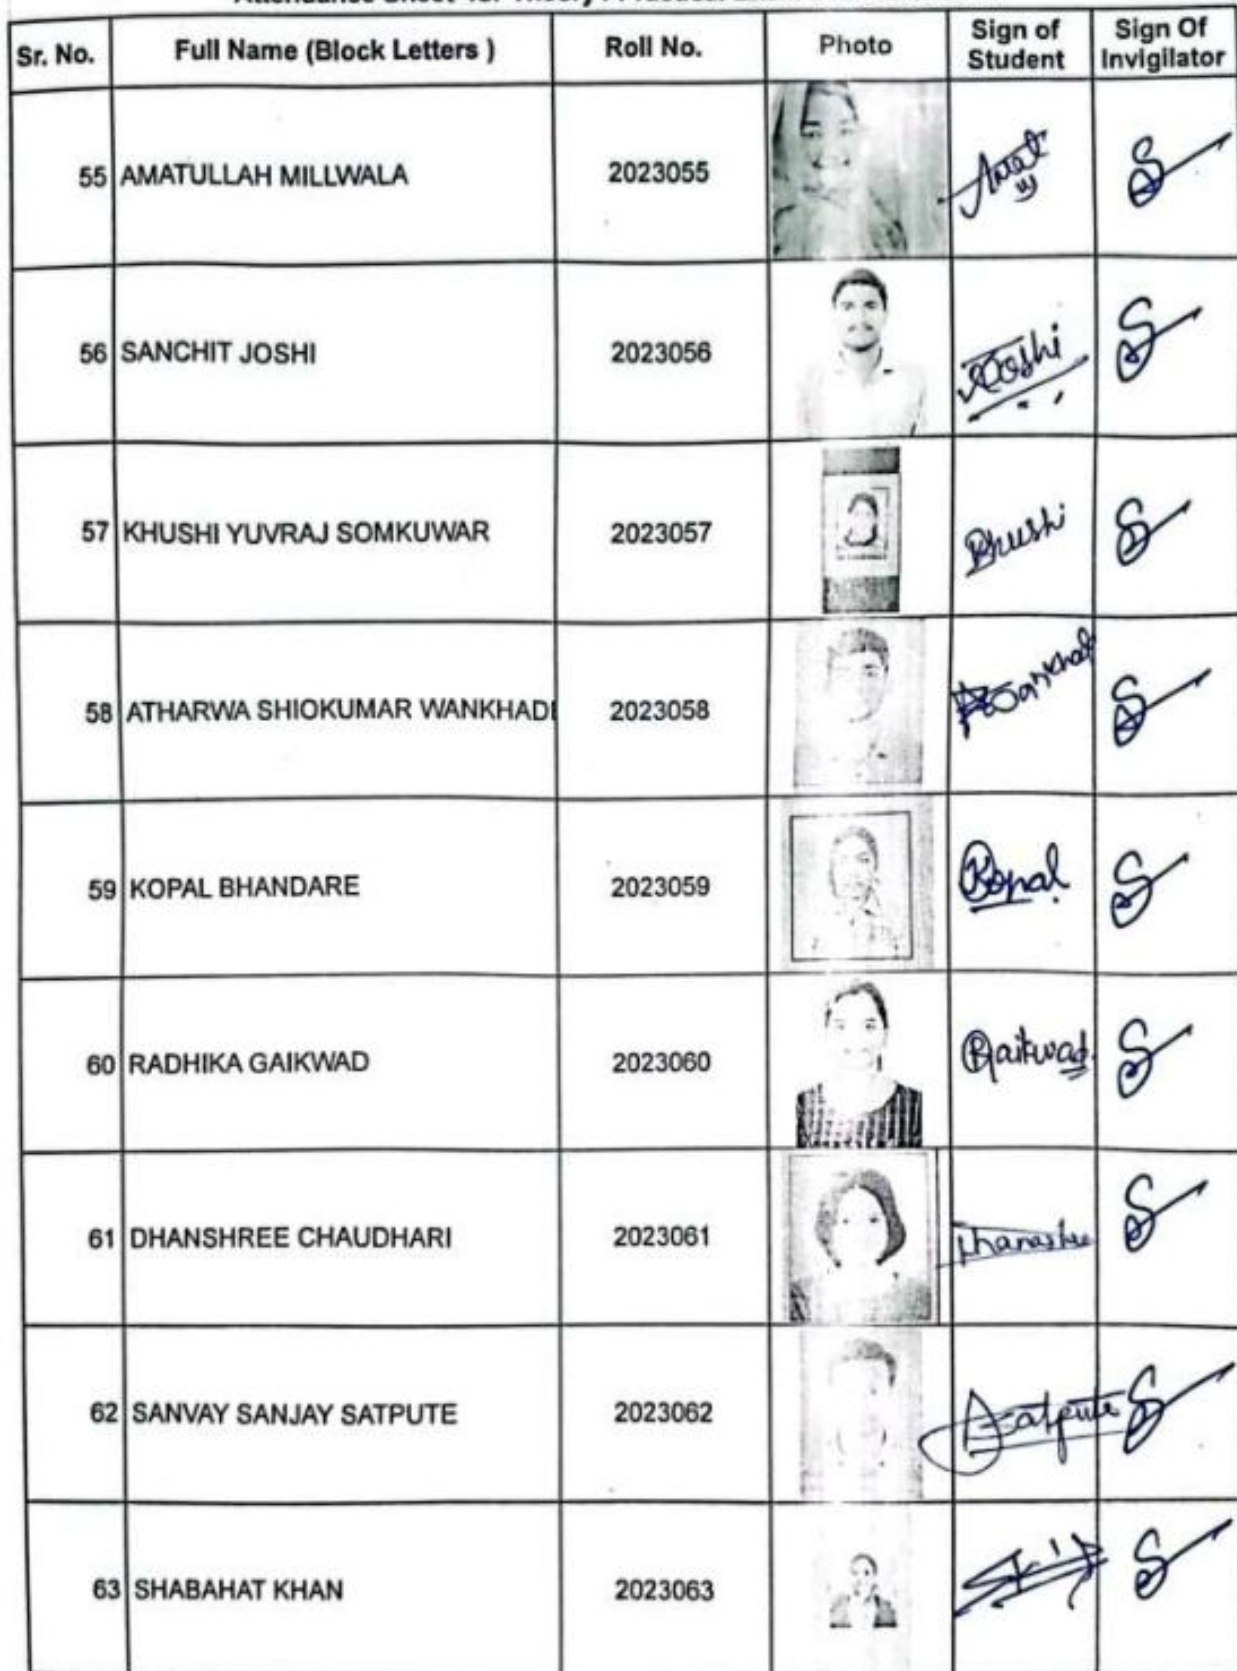 Attendance Sheet for Theory / Practical
Sr. No. Full Name (Block Letters ) Roll No. Photo Sign of Student Sign Of Invigilator
55 AMATULLAH MILLWALA 2023055
56 SANCHIT JOSHI 2023056 Joshi
57 KHUSHI YUVRAJ SOMKUWAR 2023057 Khushi
58 ATHARWA SHIOKUMAR WANKHAD 2023058
59 KOPAL BHANDARE 2023059 Kopal
60 RADHIKA GAIKWAD 2023060 Gaikwad
61 DHANSHREE CHAUDHARI 2023061 Dhanashree
62 SANVAY SANJAY SATPUTE 2023062 Satpute
63 SHABAHAT KHAN 2023063